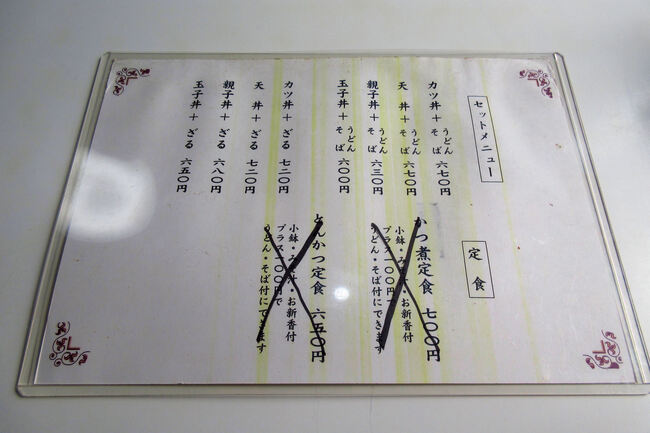 セットメニュー
カツ丼＋うどんそば 六七〇円
天丼＋うどんそば 六七〇円
親子丼＋うどんそば 六三〇円
玉子丼＋うどんそば 六〇〇円
カツ丼＋ざる 七二〇円
天丼＋ざる 七二〇円
親子丼＋ざる 六八〇円
玉子丼＋ざる 六五〇円
定食
かつ煮定食 七〇〇円
小鉢・みそ汁・お新香付
プラス一〇〇円で
うどん・そば付にできます
とんかつ定食 六五〇円
小鉢・みそ汁・お新香付
プラス一〇〇円で
うどん・そば付にできます